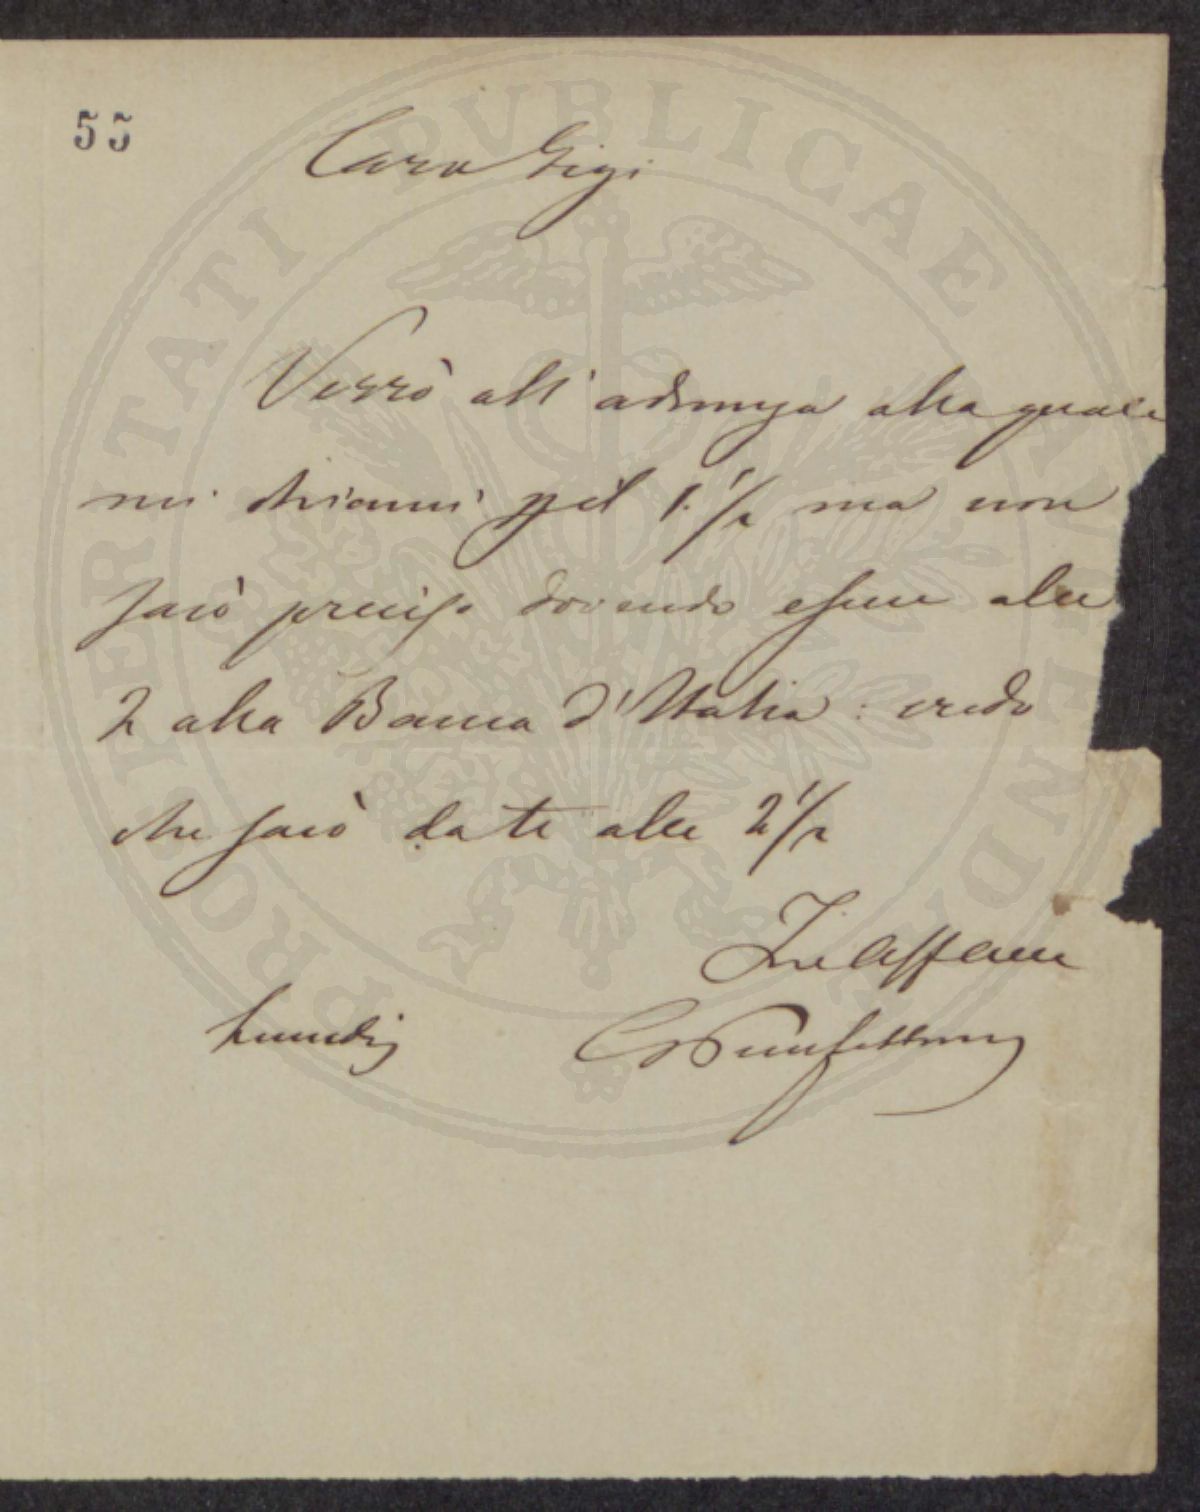 55
Caro Gigi
Verrò all'adunanza alla quale
mi chiami pel 1. 1/2 ma non
sarò preciso dovendo essere alle
2 alla Banca d'Italia: credo
che sarò da te alle 2 1/2
Tuo aff
Lunedì
PROSPERITATI PVBLICAE AVGENDAE